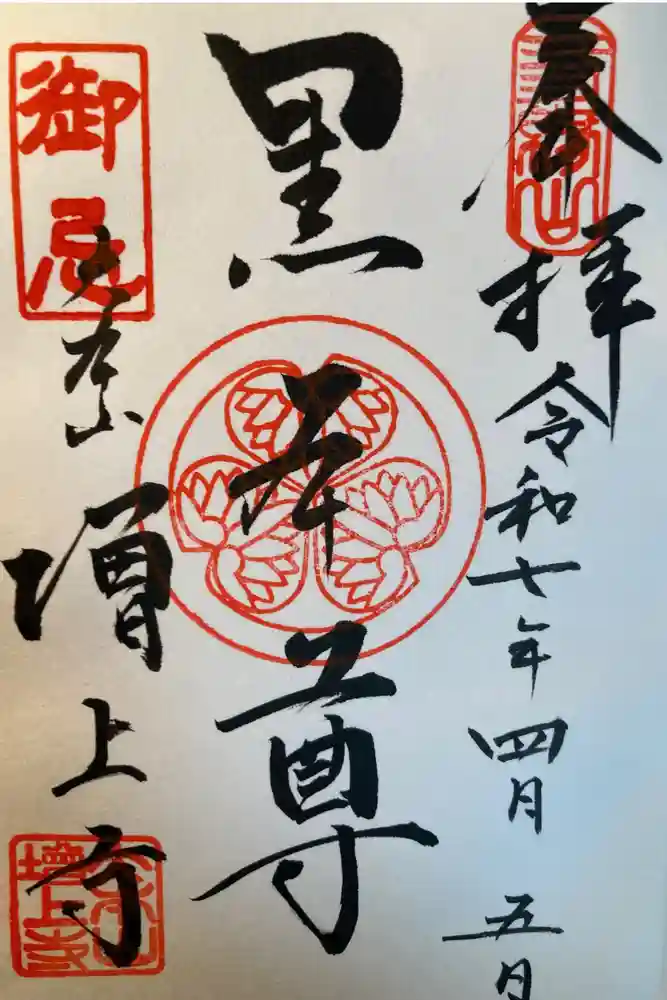 三縁山
奉拝 令和七年四月五日
黒本尊
御忌
大本山 増上寺
大本山
増上寺